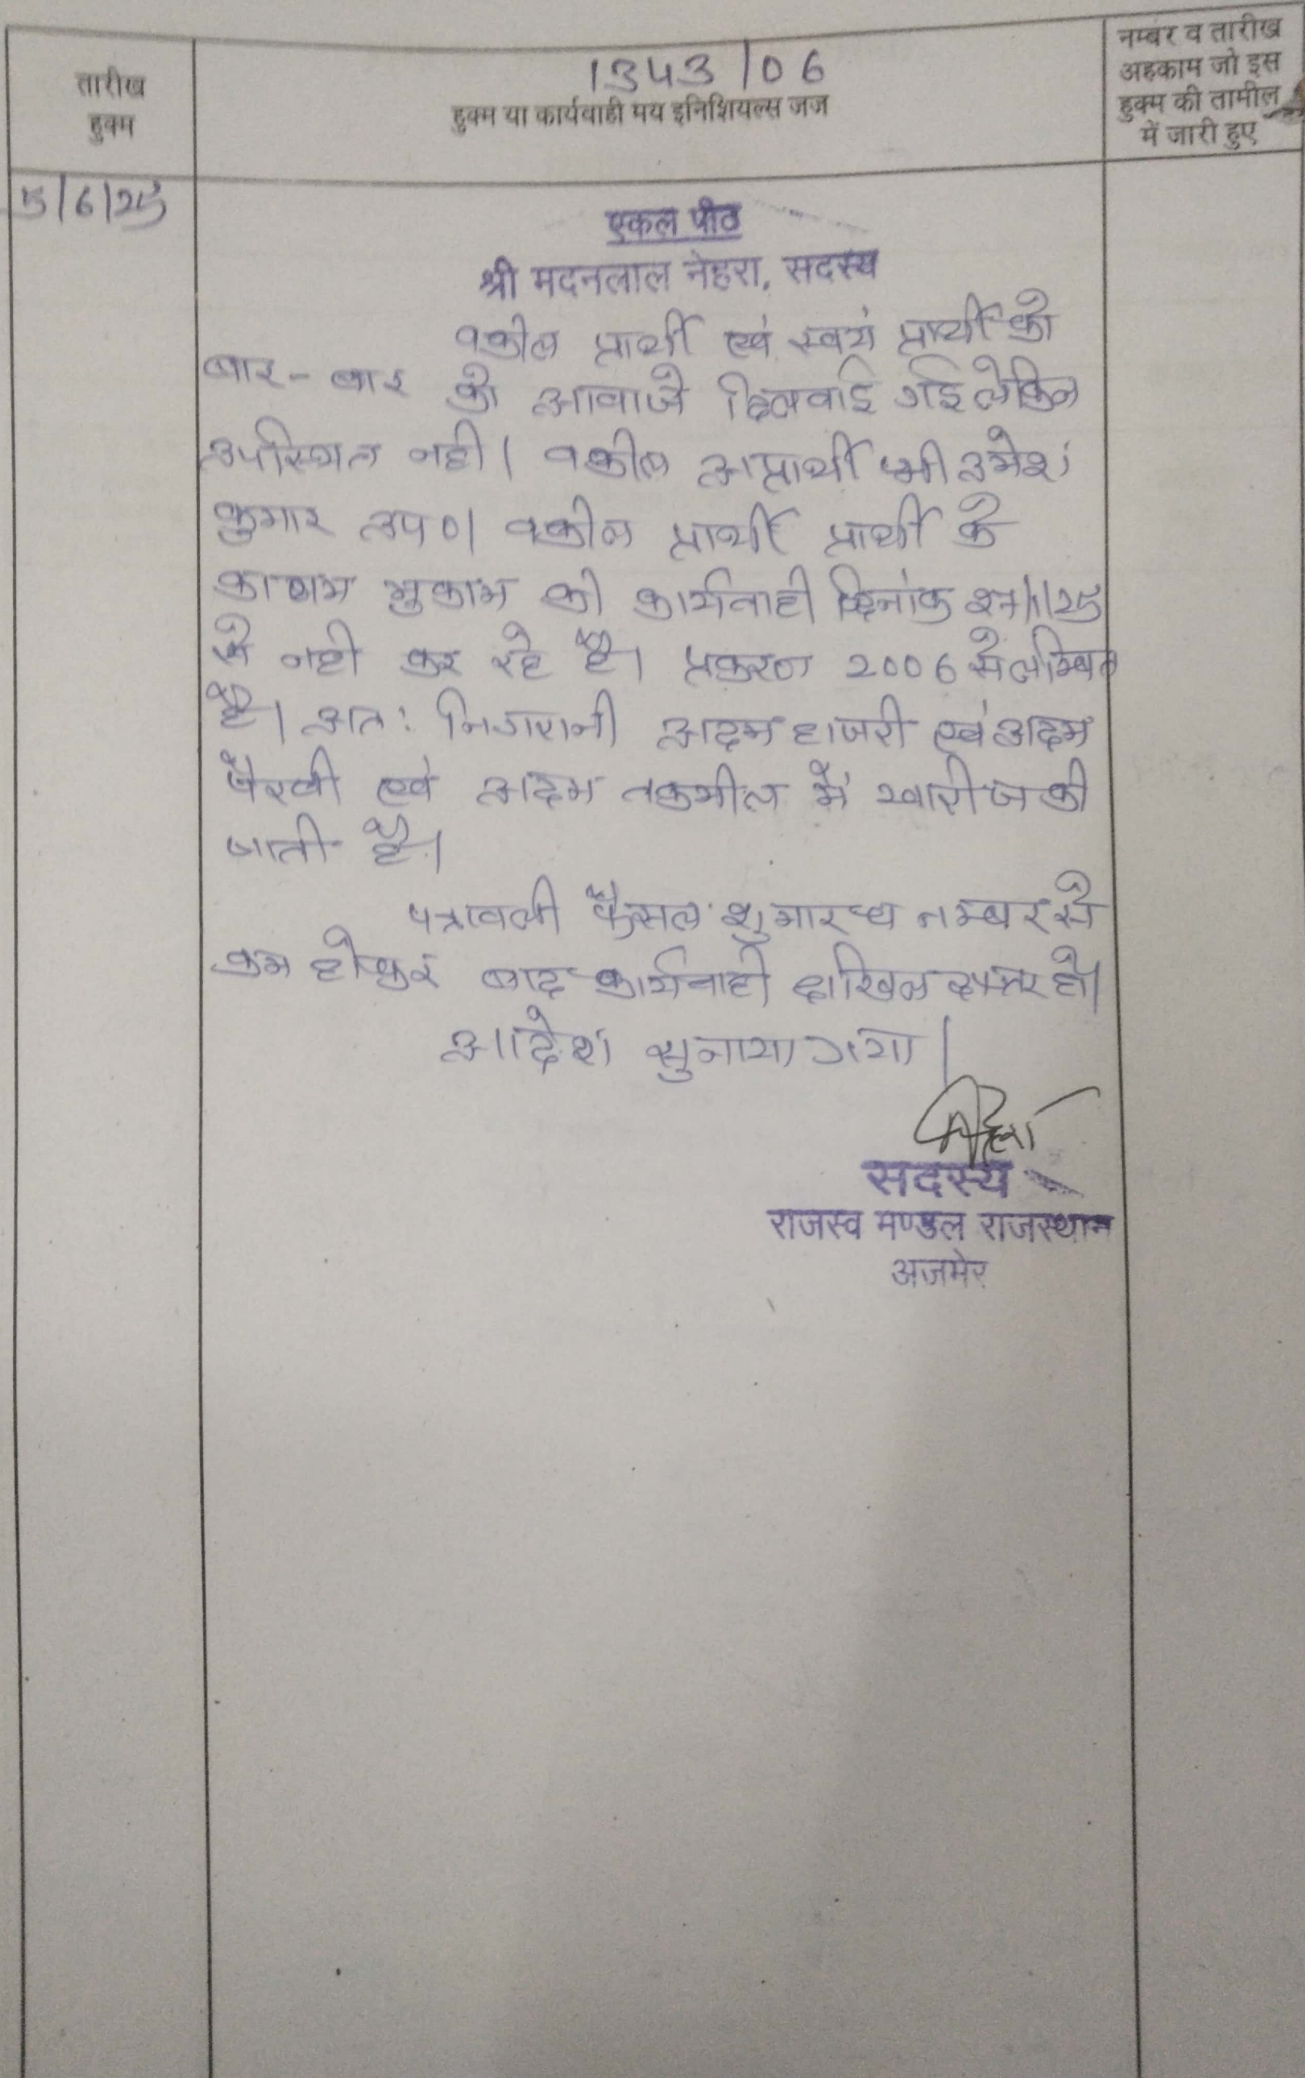 तारीख
हुक्म
1343/06
हुक्म या कार्यवाही मय इनिशियल्स जज
नम्बर व तारीख
अहकाम जो इस
हुक्म की तामील
में जारी हुए
5/6/25
एकल पीठ
श्री मदनलाल नेहरा, सदस्य
वकील प्रार्थी एवं स्वयं प्रार्थी को
बार-बार को आवाजे दिलवाई गई लेकिन
उपस्थित नही। वकील अप्रार्थी श्री उमेश
कुमार उप०। वकील प्रार्थी प्रार्थी के
कायम मुकाम की कार्यवाही दिनांक 27/1/25
से नही कर रहे है। प्रकरण 2006 से लम्बित
है। अतः निगरानी अदम हाजरी एवं अदम
पैरवी एवं अदम तकमील में खारीज की
जाती है।
पत्रावली फैसल शुमार नम्बर से
कम होकर बाद कार्यवाही दाखिल दफ्तर हो।
आदेश सुनाया गया।
सदस्य
राजस्व मण्डल राजस्थान
अजमेर